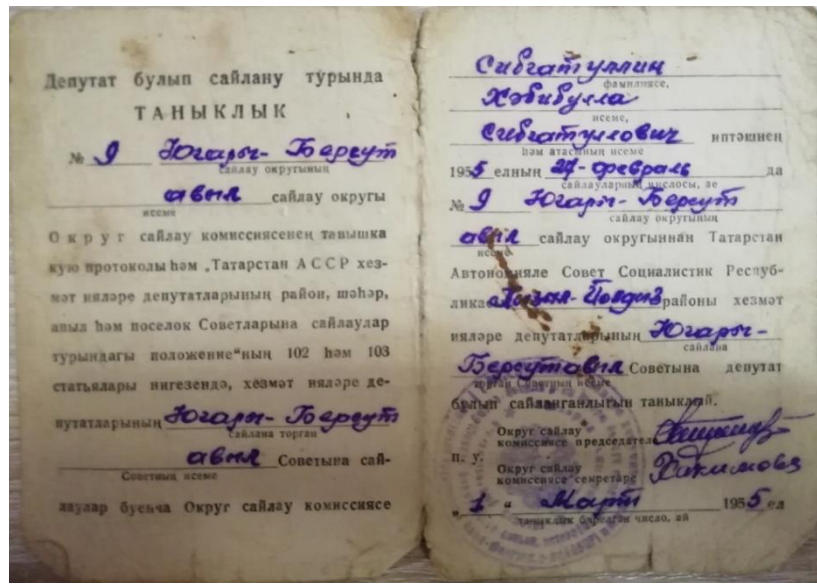 Депутат булып сайлану турында
ТАНЫКЛЫК
№ 9 Югары-Берсут
сайлау округының
авыл сайлау округы
исеме
Округ сайлау комиссиясенең тавышка
кую протоколы һәм „Татарстан АССР хез-
мәт ияләре депутатларының район, шәһәр,
авыл һәм поселок Советларына сайлаулар
турындагы положение“ның 102 һәм 103
статьялары нигезендә, хезмәт ияләре де-
путатларының Югары-Берсут
сайлана торган
авыл Советына сай-
Советның исеме
лаулар буенча Округ сайлау комиссиясе
Сибгатуллин
фамилиясе,
Хәбибулла
исеме,
Сибгатуллович иптәшнең
һәм атасының исеме
1955 елның 27-февраль да
сайлауларның числосы, ае
№ 9 Югары-Берсут
сайлау округының
авыл сайлау округыннан Татарстан
исеме
Автономияле Совет Социалистик Респуб-
ликасы Кызыл-Йолдыз районы хезмәт
ияләре депутатларының Югары-
сайлана
Берсут авыл Советына депутат
торган Советның исеме
булып сайланганлыгын таныклый.
Округ сайлау
комиссиясе председателе
П. У.
Округ сайлау
комиссиясе секретаре Хакимова
„1“ Март 1955 ел
таныклык бирелгән число, ай